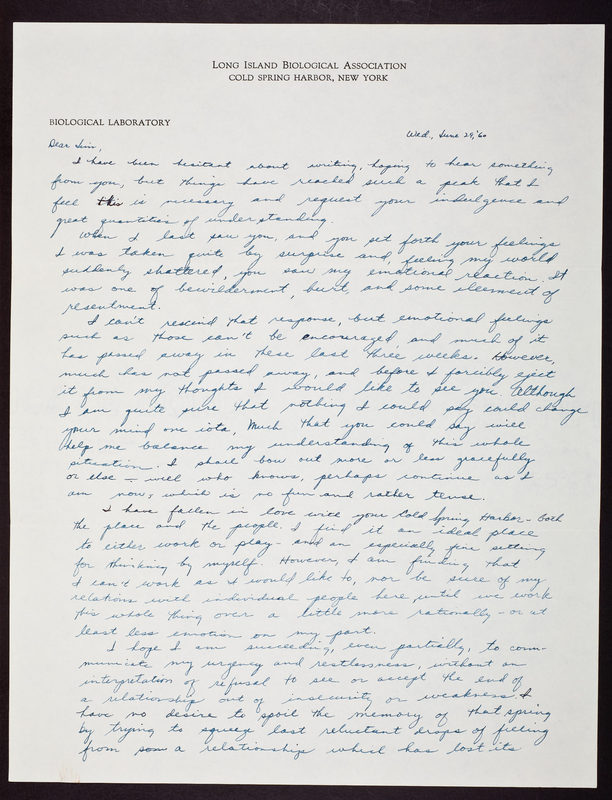 LONG ISLAND BIOLOGICAL ASSOCIATION
COLD SPRING HARBOR, NEW YORK
BIOLOGICAL LABORATORY
Wed., June 29, '60
Dear Jim,
I have been hesitant about writing, hoping to hear something
from you, but things have reached such a peak that I
feel this is necessary and request your indulgence and
great quantities of understanding.
When I last saw you, and you set forth your feelings
I was taken quite by surprise and, feeling my world
suddenly shattered, you saw my emotional reaction. It
was one of bewilderment, hurt, and some eleement of
resentment.
I can't rescind that response, but emotional feelings
such as those can't be encouraged, and much of it
has passed away in these last three weeks. However,
much has not passed away, and before I forcibly eject
it from my thoughts I would like to see you. Although
I am quite sure that nothing I could say could change
your mind one iota, Much that you could say will
help me balance my understanding of this whole
situation. I shall bow out more or less gracefully
or else – well who knows, perhaps continue as I
am now, which is no fun and rather tense.
I have fallen in love with your Cold Spring Harbor – both
the place and the people. I find it an ideal place
to either work or play – and an especially fine setting
for thinking by myself. However, I am finding that
I can't work as I would like to, nor be sure of my
relations with individual people here until we work
this whole thing over a little more rationally – or at
least less emotion on my part.
I hope I am succeeding, even partially, to com-
municate my urgency and restlessness, without an
interpretation of refusal to see or accept the end of
a relationship out of insecurity or weakness. I
have no desire to spoil the memory of that spring
by trying to squeeze last reluctant drops of feeling
from a relationship which has lost its